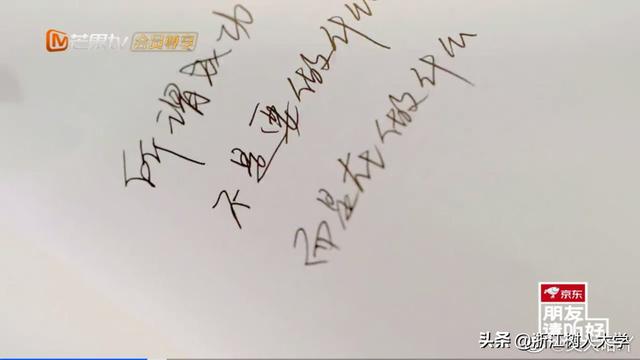 芒果tv 会员尊享
所谓成功
不是要做什么
而是在做什么
京东
朋友
请听好
头条 @浙江树人大学